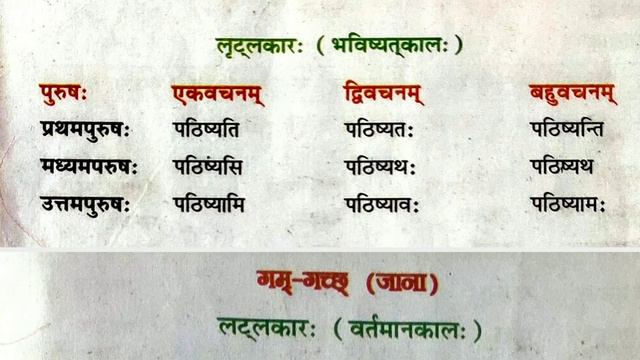 लृट्लकारः ( भविष्यत्कालः )
पुरुषः एकवचनम् द्विवचनम् बहुवचनम्
प्रथमपुरुषः पठिष्यति पठिष्यतः पठिष्यन्ति
मध्यमपरुषः पठिष्यसि पठिष्यथः पठिष्यथ
उत्तमपुरुषः पठिष्यामि पठिष्यावः पठिष्यामः
गम्-गच्छ् (जाना)
लट्लकारः ( वर्तमानकालः )